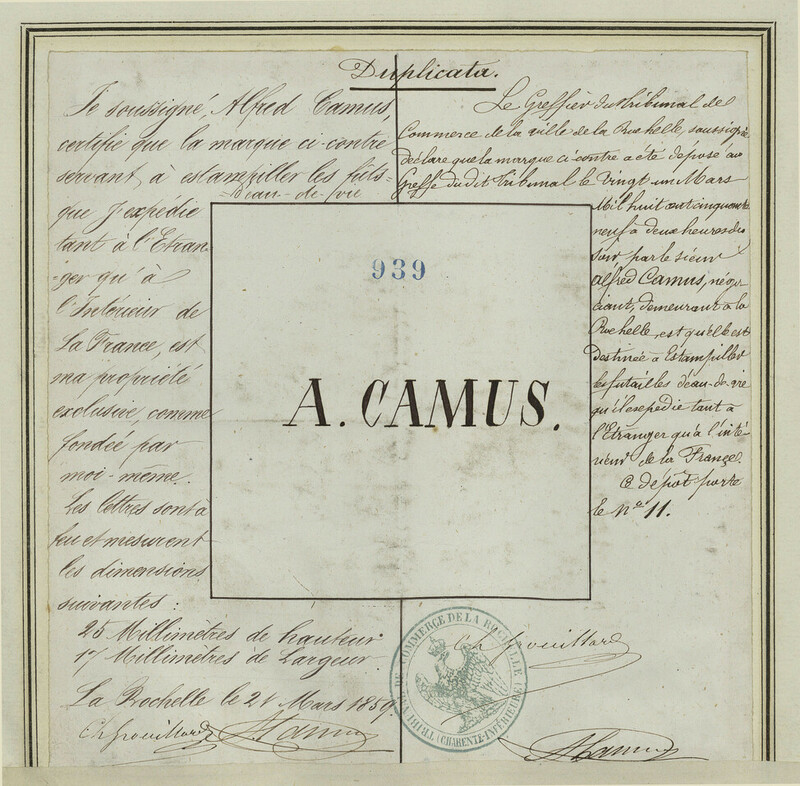 Duplicata.
Je soussigné, Alfred Camus,
certifie que la marque ci-contre
servant à estampiller les fûts
d'eau-de-vie
que j'expédie
tant à l'Etran
-ger qu'à
l'Intérieur de
La France, est
ma propriété
exclusive, comme
fondée par
moi-même.
Les lettres sont à
feu et mesurent
les dimensions
suivantes :
25 Millimètres de hauteur
17 Millimètres de Largeur.
La Rochelle le 21 Mars 1859.
Ch frouillard
A Camus
Le Greffier du tribunal de
Commerce de la ville de la Rochelle, soussigné
déclare que la marque ci-contre a été déposé au
Greffe du dit Tribunal le vingt un Mars
Mil huit cent cinquante
neuf à deux heures du
soir par le sieur
Alfred Camus, négo-
ciant, demeurant à la
Rochelle, est qu'elle est
destinée à Estampiller
les futailles d'eau-de-vie
qu'il expédie tant à
l'Etranger qu'à l'inté-
rieur de la France.
Ce dépôt porte
le No 11.
939
A. CAMUS.
TRIBUNAL DE COMMERCE DE LA ROCHELLE
(CHARENTE-INFÉRIEURE)
Ch frouillard
A Camus